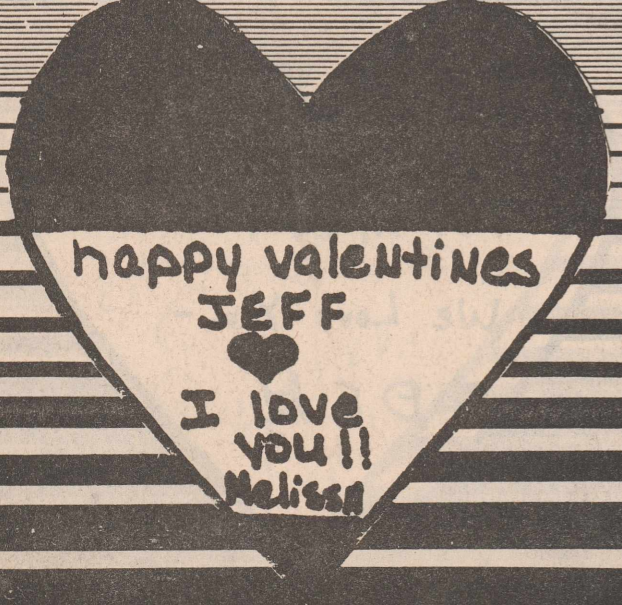 happy valeNtiNes
JEFF
I love
you!!
Melissa